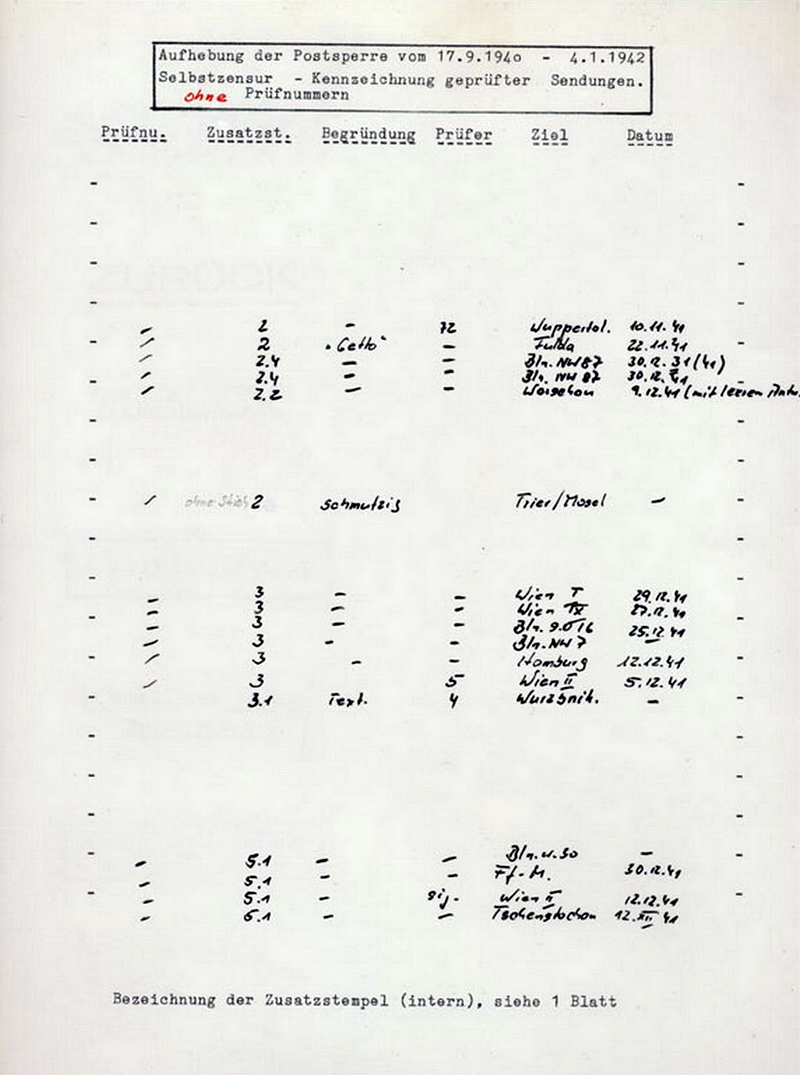 Aufhebung der Postsperre vom 17.9.194o - 4.1.1942
Selbstzensur - Kennzeichnung geprüfter Sendungen.
ohne Prüfnummern
Prüfnu. Zusatzst. Begründung Prüfer Ziel Datum
- 2 - 72 Wuppertal. 10.11.41
- 2 "Getto" - Fulda 22.11.41
- 2.4 - - Bln. NW87 30.12.31(41)
- 2.4 - - Bln. NW 87 30.12.41
- 2.2 - - Warschau 9.12.41 (mit
- ohne 2 schmutzig Trier/Mosel -
- 3 - - Wien 29.12.41
- 3 - - Wien 27.12.41
- 3 - - Bln. 25.12.41
- 3 - - Bln. NW 7
- 3 - - Hamburg 12.12.41
- 3 5 Wien II 5.12.41
3.1 Text. 4 -
- 5.1 - - Bln. W. 30 -
- 5.1 - - Ff.-M. 30.12.41
- 5.1 - Wien II 12.12.41
- 5.1 - - Tschenstochau 12.XII 41
Bezeichnung der Zusatzstempel (intern), siehe 1 Blatt